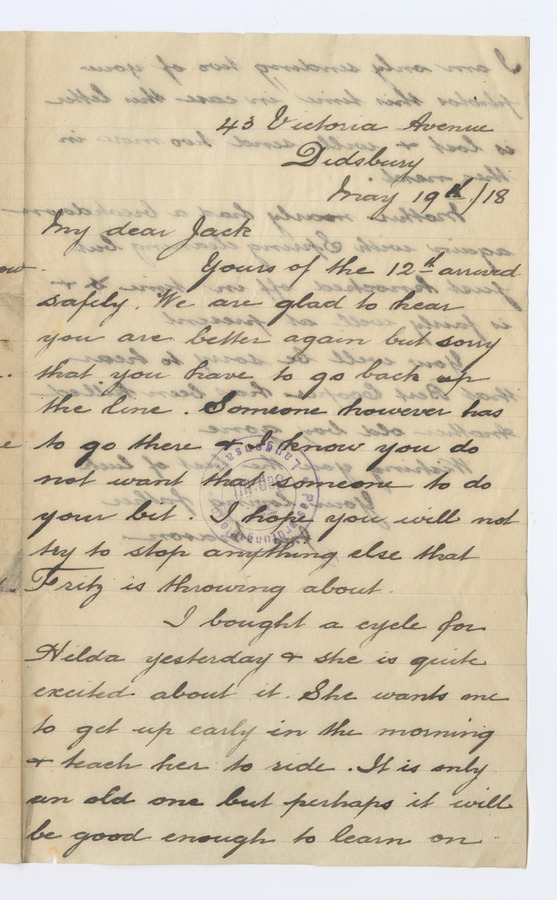 43 Victoria Avenue
Didsbury
May 19th/18
My dear Jack
Yours of the 12th arrived
safely. We are glad to hear
you are better again but sorry
that you have to go back up
the line. Someone however has
to go there & I know you do
not want that someone to do
your bit. I hope you will not
try to stop anything else that
Fritz is throwing about.
I bought a cycle for
Hilda yesterday & she is quite
excited about it. She wants me
to get up early in the morning
& teach her to ride. It is only
an old one but perhaps it will
be good enough to learn on.